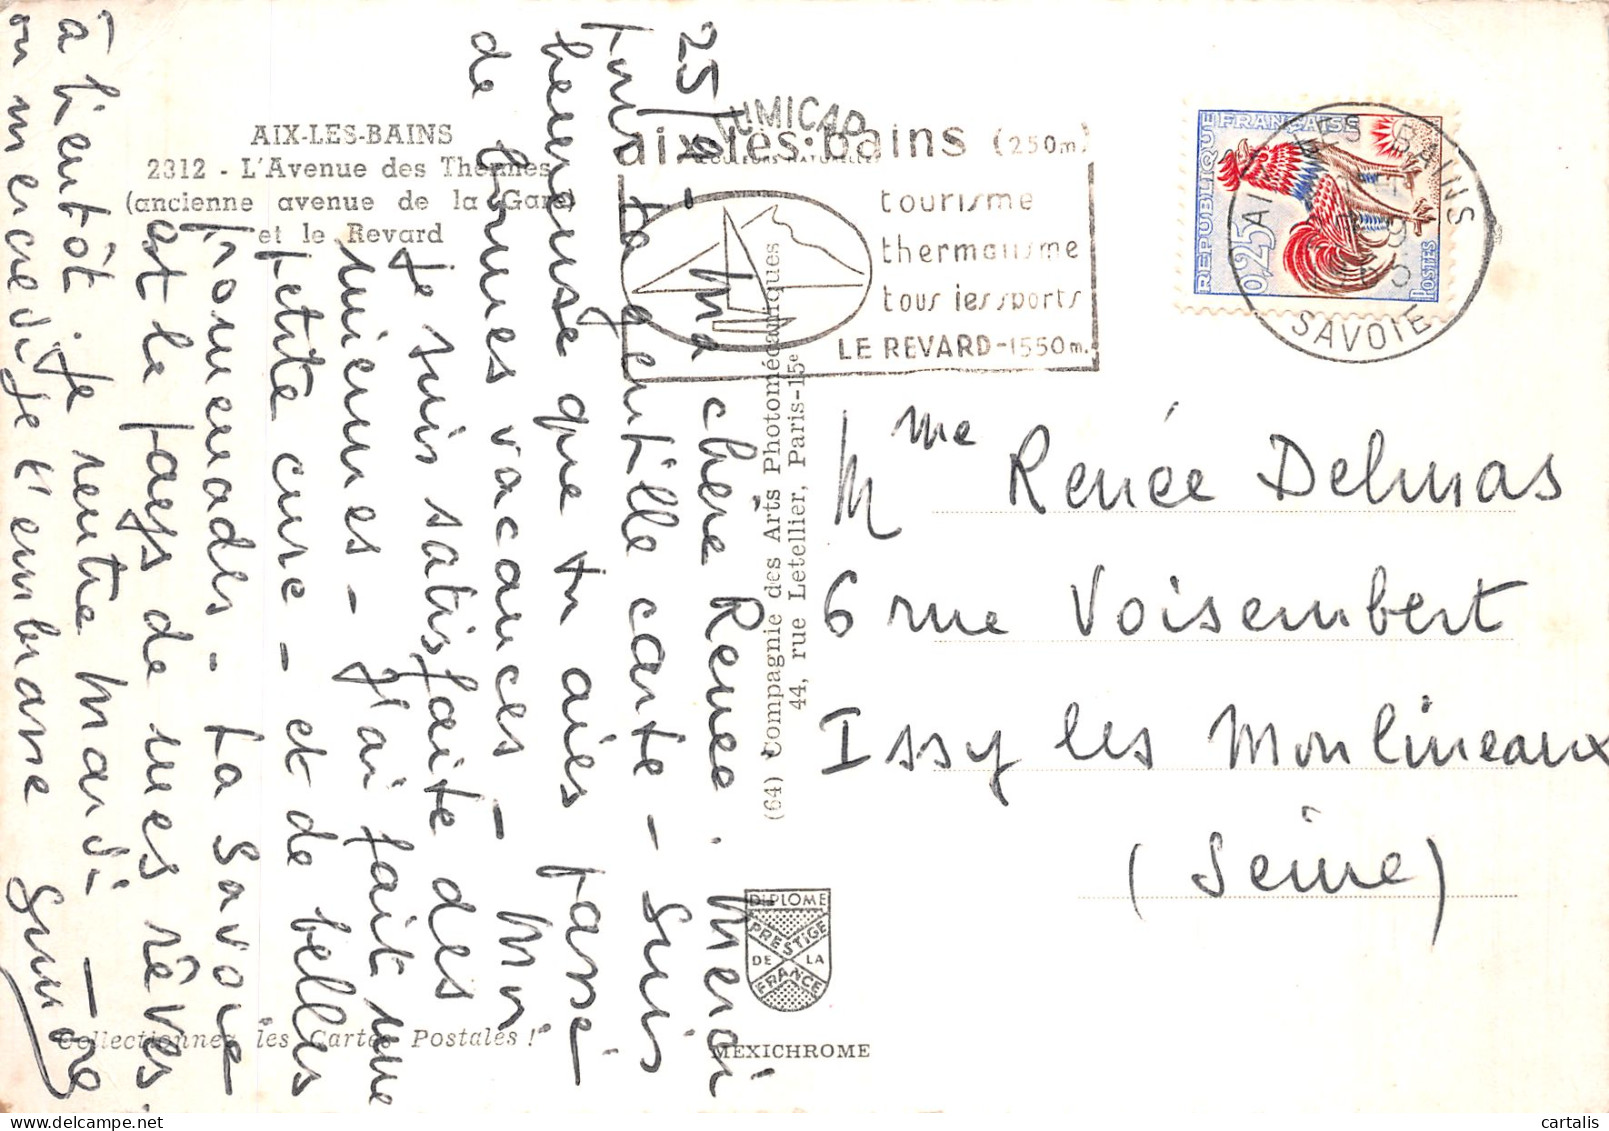 AIX-LES-BAINS
2312 - L'Avenue des Thermes
(ancienne avenue de la Gare)
et le Revard
LUMICAP
COULEURS NATURELLES
aix-les-bains (250m)
tourisme
thermalisme
tous les sports
LE REVARD-1550m.
REPUBLIQUE FRANÇAISE
0,25
POSTES
AIX LES BAINS
SAVOIE
25/9 - Ma chère Renée. Merci
pour ta gentille carte - Suis
heureuse que tu aies passé
de bonnes vacances -
Je suis satisfaite des
miennes - j'ai fait une
petite cure - et de belles
promenades - La Savoie
est le pays de mes rêves.
à bientôt. je rentre mardi -
ou mercredi je t'embrasse Simone
Mme Renée Delmas
6 rue Voisembert
Issy les Moulineaux
(Seine)
(64) Compagnie des Arts Photomécaniques
44, rue Letellier, Paris-15e
DIPLOME
PRESTIGE
DE LA
FRANCE
Collectionnez les Cartes Postales !
MEXICHROME
cartalis
© delcampe.net